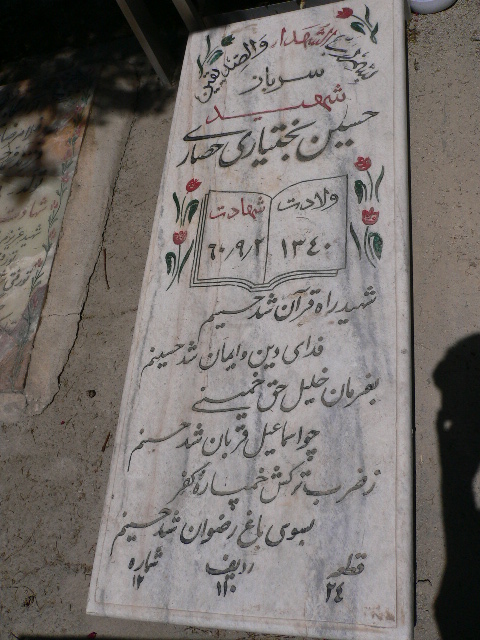 بسم رب الشهدا والصدیقین
سرباز
شهید
حسین بختیاری حصاری
ولادت شهادت
۱۳۴۰ ۶۰٫۹٫۲
شهید راه قرآن شد حسینم
فدای دین و ایمان شد حسینم
بفرمان خلیل حق خمینی
چو اسماعیل قربان شد حسینم
ز ضرب ترکش خمپاره کفر
بسوی باغ رضوان شد حسینم
قطعه ردیف شماره
۲۴ ۱۱۰ ۱۲